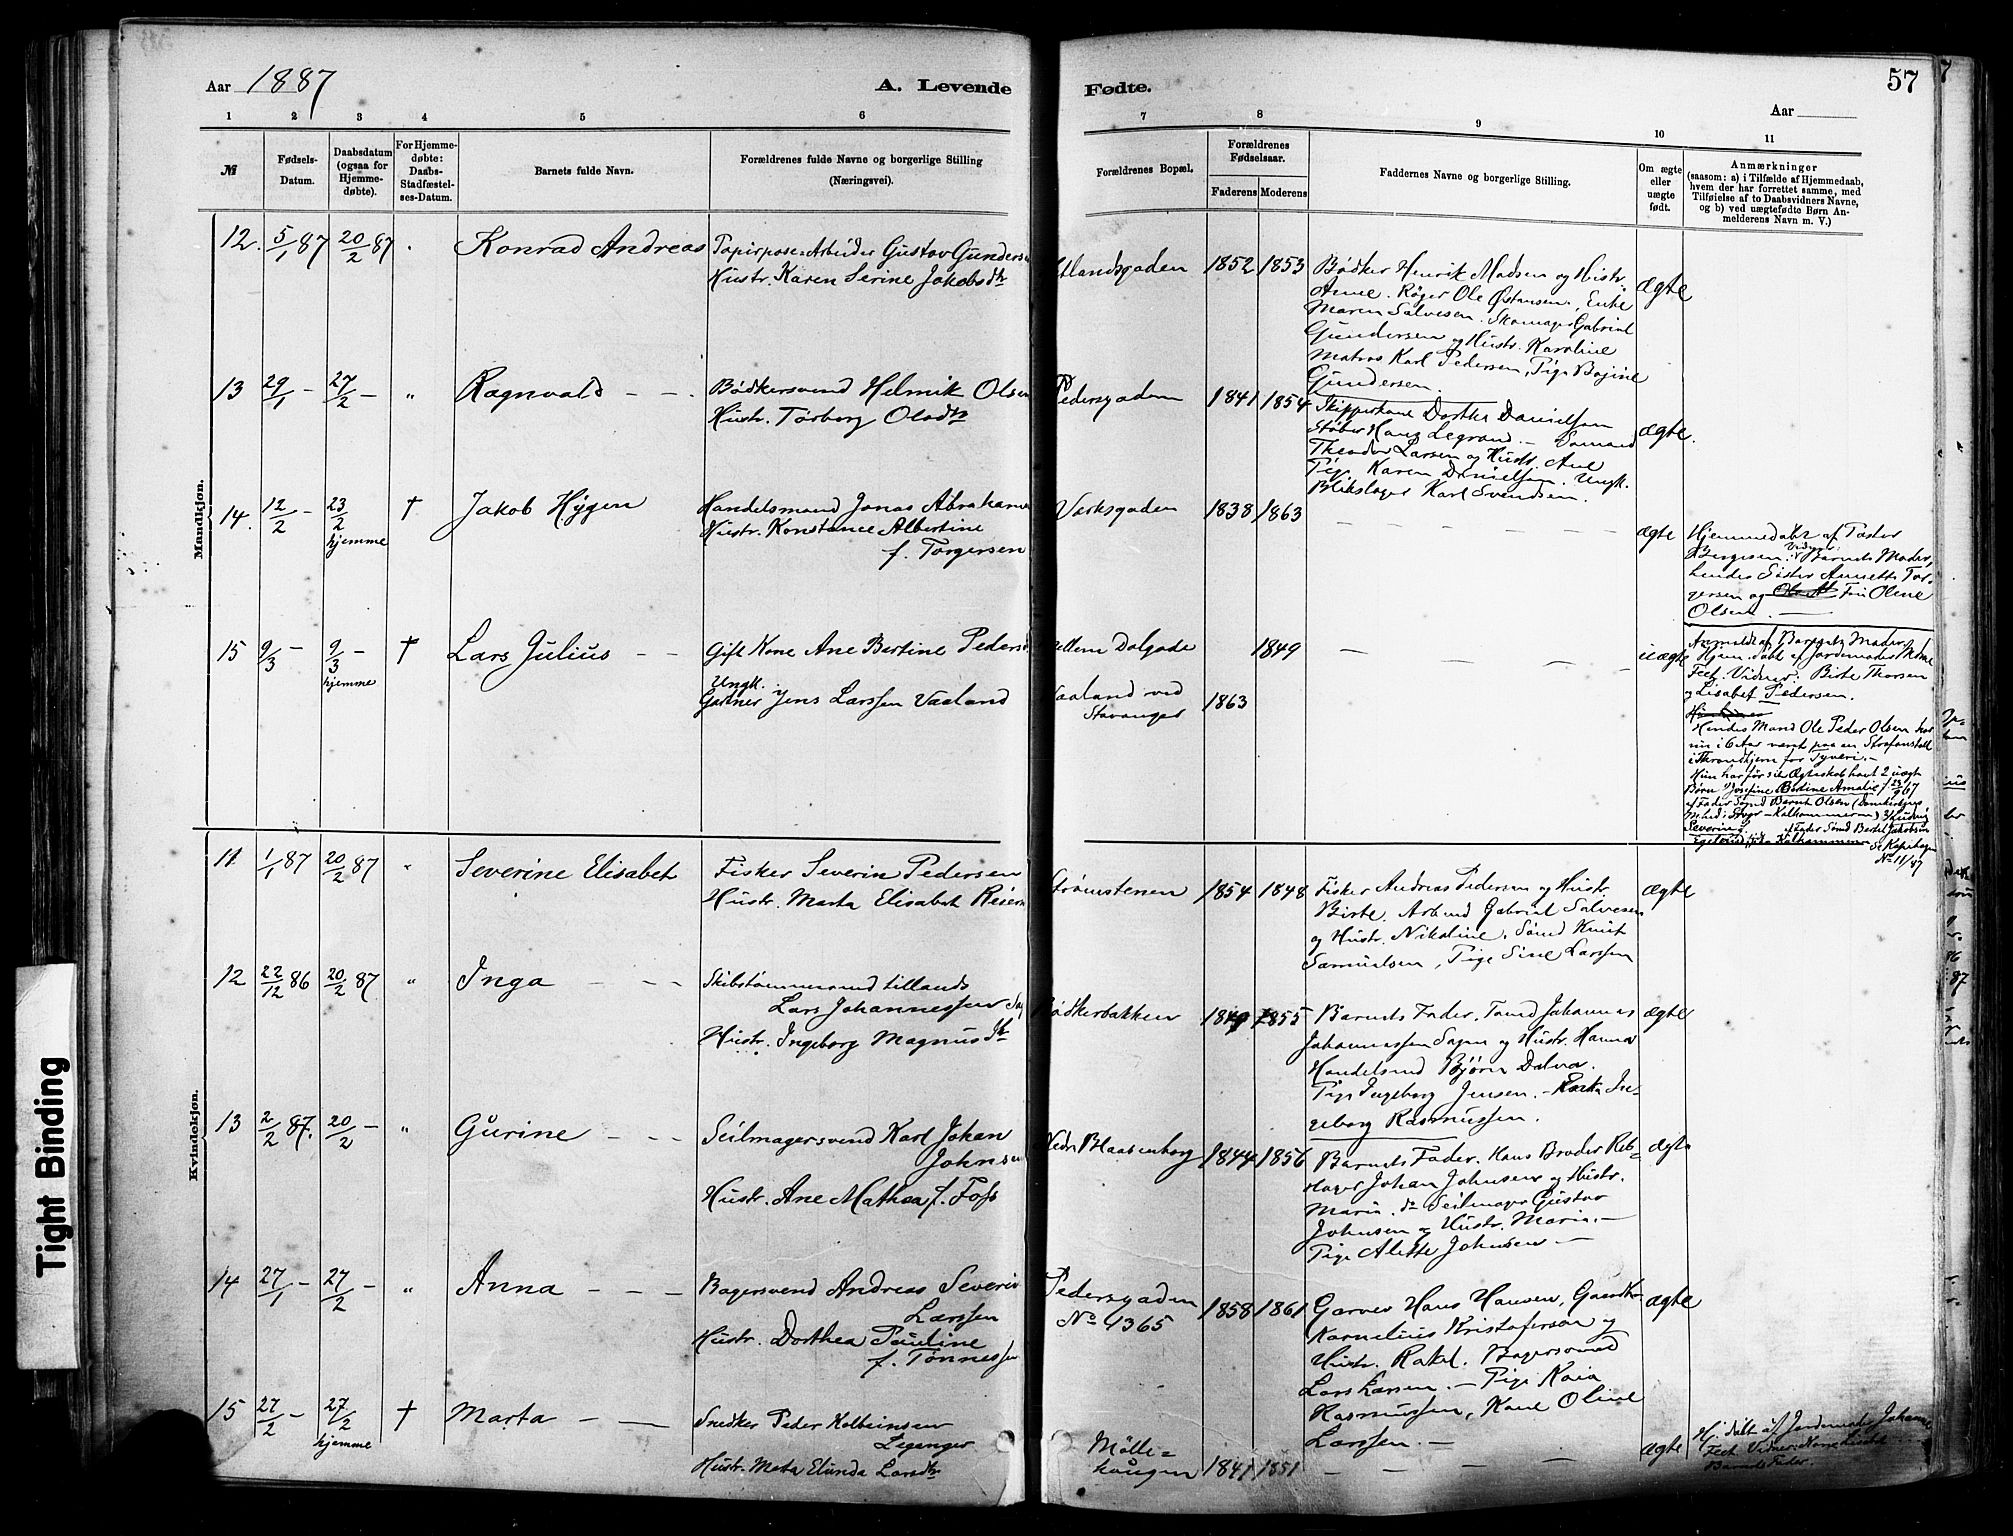 Aar 1887
A. Levende Fødte.
57
Aar
1 2 3 4 5 6 7 8 9 10 11
№
Fødsels-Datum.
Daabsdatum (ogsaa for Hjemmedøbte).
For Hjemmedøbte: Daabs-Stadfæstelses-Datum.
Barnets fulde Navn.
Forældrenes fulde Navne og borgerlige Stilling (Næringsvei).
Forældrenes Bopæl.
Forældrenes Fødselsaar.
Faderens Moderens
Faddernes Navne og borgerlige Stilling.
Om ægte eller uægte født.
Anmærkninger
(saasom: a) i Tilfælde af Hjemmedaab,
hvem der har forrettet samme, med
Tilføielse af to Daabsvidners Navne,
og b) ved uægtefødte Børn Anmelderens Navn m. V.)
Mandkjøn.
12. 5/1 87 20/2 87 " Konrad Andreas
Papirpose-Arbeider Gustav Gunders
Hustr. Karen Serine Jakobsdtr
1852 1853
Bødker Henrik Madsen og Hustr.
Anne. Røger Ole Østensen, Enke
Maren Salvesen. Skomager Gabriel
Gundersen og Hustr. Karoline
Matros Karl Pedersen, Pige Bojine
Gundersen.
Ægte
13 29/1 – 27/2 – " Ragnvald
Bødkersvend Helmik Olsen
Hustr. Torborg Olsdtr
Pedersgaden
1841 1854
Skipperkone Dorthea Danielsen
Støber Hans Legrand. – Sømand
Theodor Larsen og Hustr. Ane
Pige Karen Danielsen. Ungk.
Blikslager Karl Svendsen.
Ægte.
14. 12/2 – 23/2 hjemme † Jakob Hygen
Handelsmand Jonas Abraham
Hustr. Konstance Albertine
f. Torgersen
Verksgaden
1838 1863
ægte
Hjemmedøbt af Pastor
Børgesen. Vidner: Barnets Moder,
hendes Søster Annette Tor-
gersen og Frue Olene
Olsen.
15 9/3 – 9/3 hjemme † Lars Julius
Gift Kone Ane Bertine Peders
Ungk.
Gartner Jens Larssen Vaaland
Dalgade
1849
Vaaland ved
Stavanger
1863
uægte
Anmeldt af Barnets Moder
Hjem. døbt af Jordemoder
Vidner: Birte Thorsen
og Lisabet Pedersen.
Hendes Mand Ole Peder Olsen har
nu i 6 Aar været paa en Strafanstalt
i Throndhjem for Tyveri. –
Hun har før sit Ægteskab havt 2 uægt
Børn 1) Josefine Bertine Amalie f.
No 11/47
Kvindekjøn.
11 1/1 87 20/2 87 " Severine Elisabet
Fisker Severin Pedersen
Hustr. Marta Elisabet Reiers
Strømstenen
1854 1848
Fisker Andreas Pedersen og Hustr.
Birte. Arb.md Gabriel Salvesen
og Hustr. Nikoline. Sømd Knut
Samuelsen, Pige Sine Larssen
Ægte
12 22/12 86 20/2 87 " Inga
Skibstømmermand tillands
Lars Johannessen
Hustr. Ingeborg Magnusdtr
Bødkerbakken
1849 1855
Barnets Fader, Tømd Johannes
Johannessen Sagen og Hustr. Hanna
Handelsmd Bjørn Dalva.
Pige Ingeborg Jensen. – In-
geborg Rasmussen.
Ægte
13 2/2 87. 20/2 – " Gurine
Seilmagersvend Karl Johan
Johnsen
Hustr. Ane Mathea f. Foss
Nedre Blaasenborg
1844 1856
Barnets Fader. Hans Broder Reb-
slager Johan Johnsen og Hustr.
Maria. do Seilmager Gustav
Johnsen og Hustr. Maria. –
Pige Alette Johnsen –
Ægte
14 27/1 – 27/2 – " Anna
Bagersvend Andreas Severin
Larssen
Hustr. Dorthea Pauline
f. Tønnessen
Pedersgaden
No 1365
1858 1861
Garver Hans Hansen,
Kornelius Kristofersen og
Hustr. Rakel. Bagersvend
Lars Larsen. – Pige Kaia
Rasmussen, Kone Oline
Larssen. –
Ægte
15 27/2 – 27/2 hjemme † Marta
Snedker Peder Kolbeinsen
Legenger
Hustr. Meta Elunda Larsdtr
Mølle-
haugen
1841 1851
ægte
Hj. døbt af Jordemoder Johanne
Barnets Fader.
Tight Binding